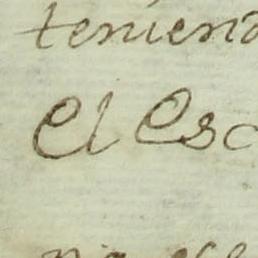 teniend
El Esc